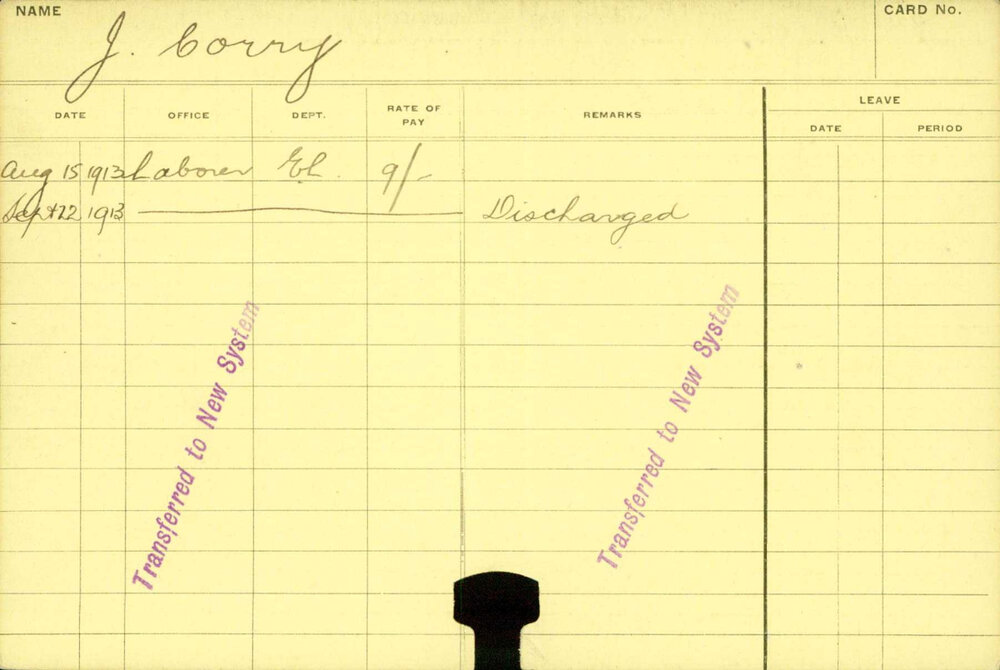 NAME
J. Corry
CARD No.
DATE OFFICE DEPT. RATE OF PAY REMARKS LEAVE
DATE PERIOD
Aug 15 1913 Laborer El. 9/-
Sept 22 1913 Discharged
Transferred to New System
Transferred to New System